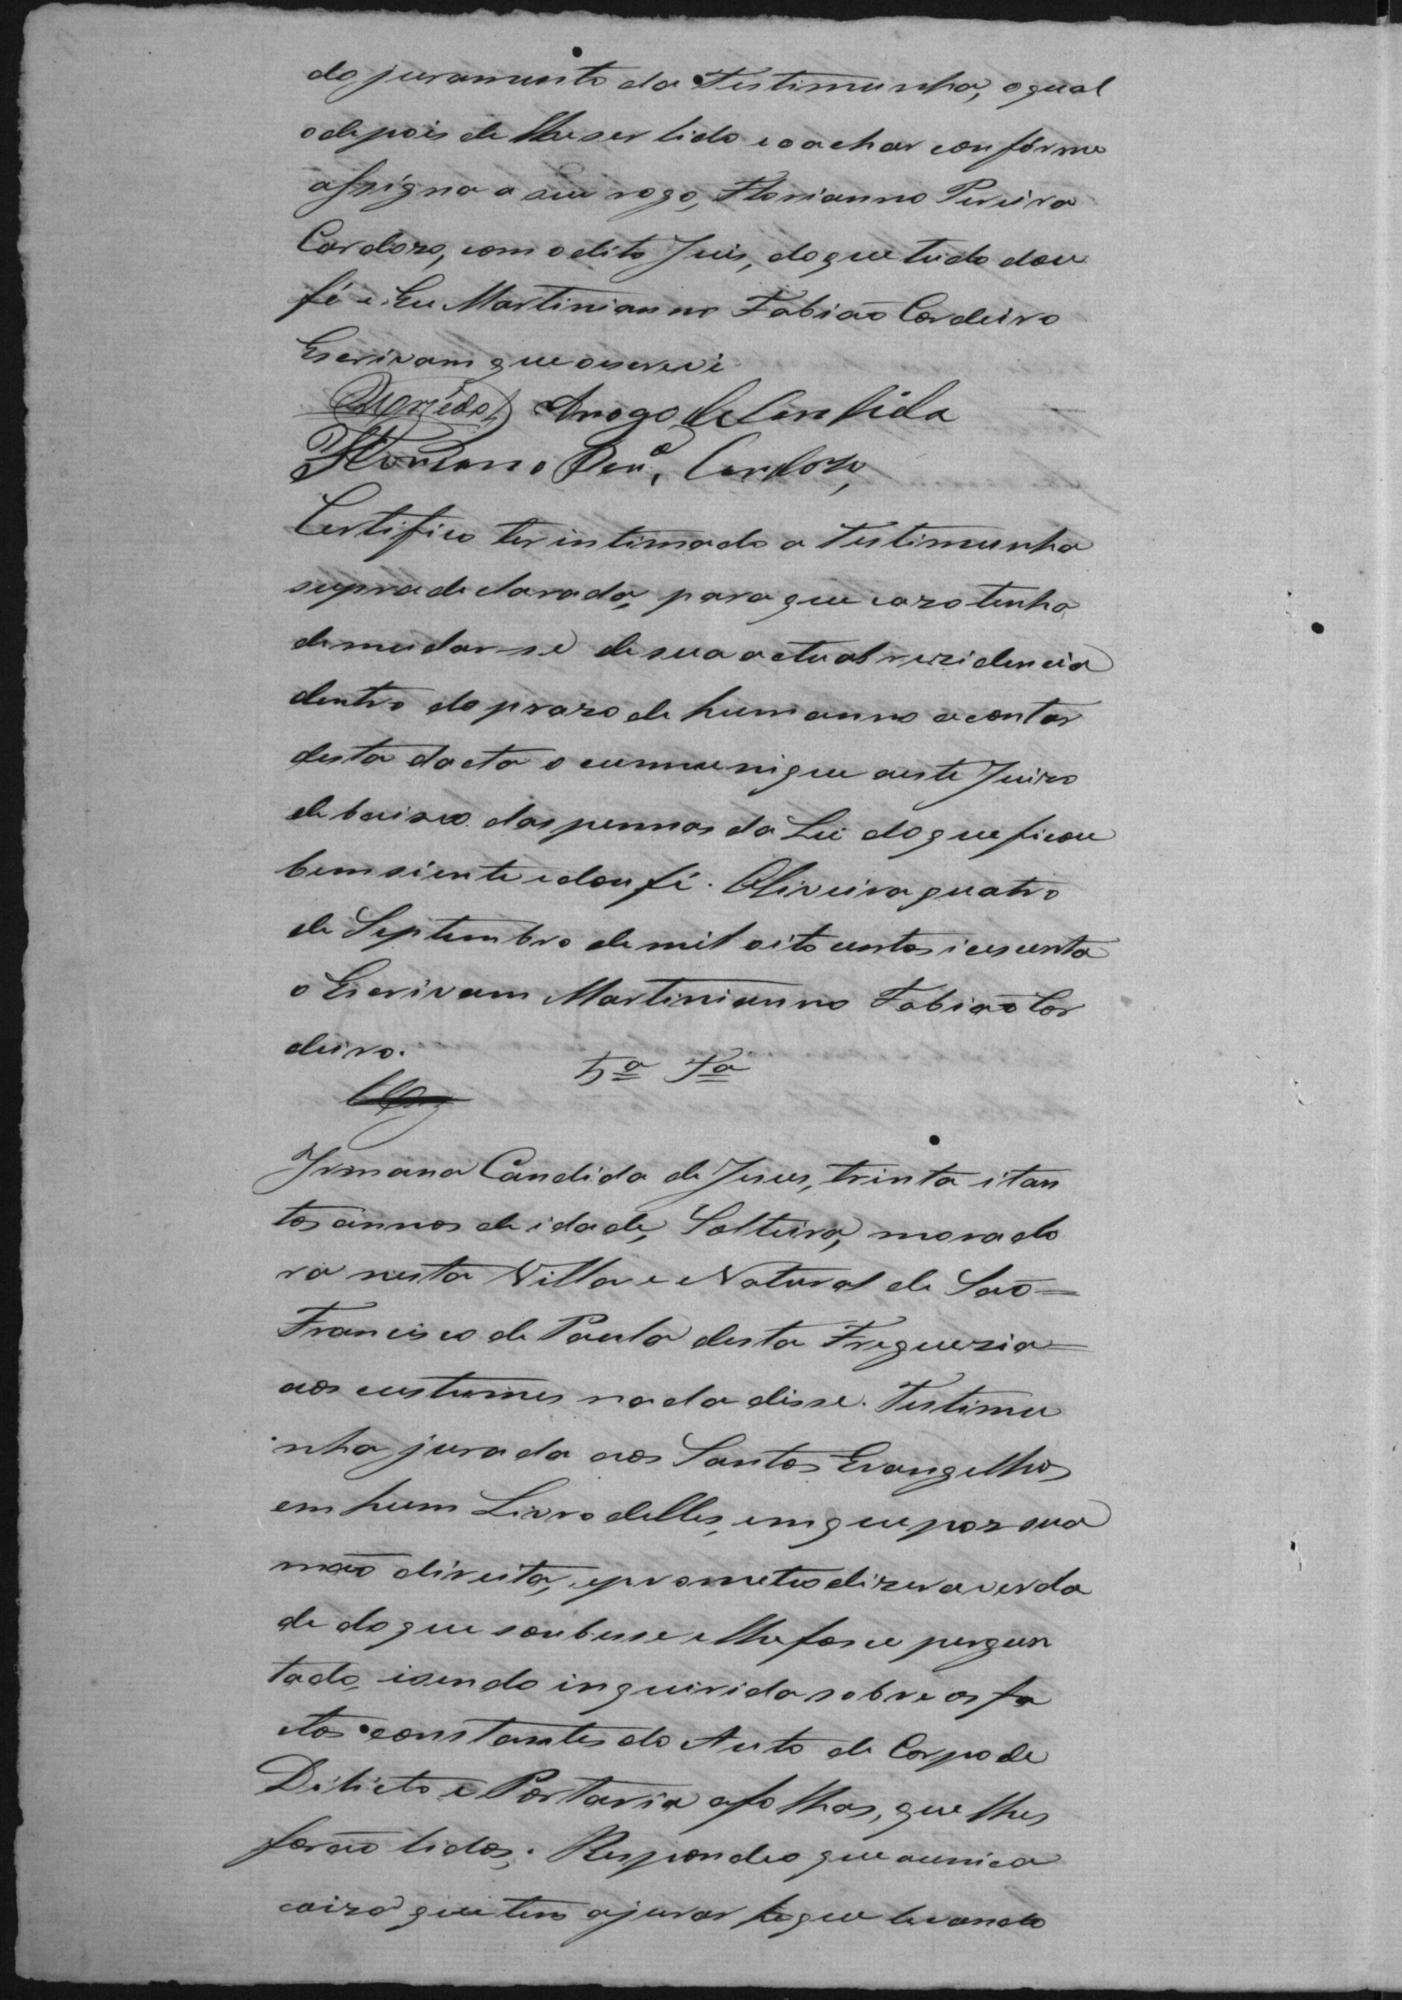 do juramento da Testimunha, o qual
o depois de lhe ser lido e o achar confórme
assigna a seu rogo, Florianno Pereira
Cardozo, com o dito Juis, do que tudo dou
fé e Eu Martinianno Fabiaõ Cordeiro
Escrivam que o escrevi
Arogo de Candida
Floriano Per.ª Cardozo,
Certifico ter intimado a Testimunha
supra declarada, para que cazo tenha
de mudar-se de sua actual rezidencia
dentro do prazo de hum anno a contar
desta dacta o cummunique a este Juizo
debaixo das pennas da Lei do que ficou
bem siente e dou fé. Oliveira quatro
de Septembro de mil oito centos i cesenta
o Escrivam Martinianno Fabiaõ Cor
deiro.
5ª Tª
Irmana Candida de Jesus, trinta i tan
tos annos de idade, Solteira, morado
ra nesta Villa e Natural de Saõ=
Francisco de Paula desta Freguezia=
aos custumes nada disse. Testimu
nha jurada aos Santos Evangelhos
em hum Livro delles, em que poz sua
maõ direita, e prometeo dizer a verda
de do que soubesse e lhe fosse pergun
tado, i sendo inquirida sobre os fa
ctos constantes do Auto de Corpo de
Dilicto e Portaria a folhas, que lhes
foraõ lidos; Respondeo que a unica
coiza que tem a jurar he que levando